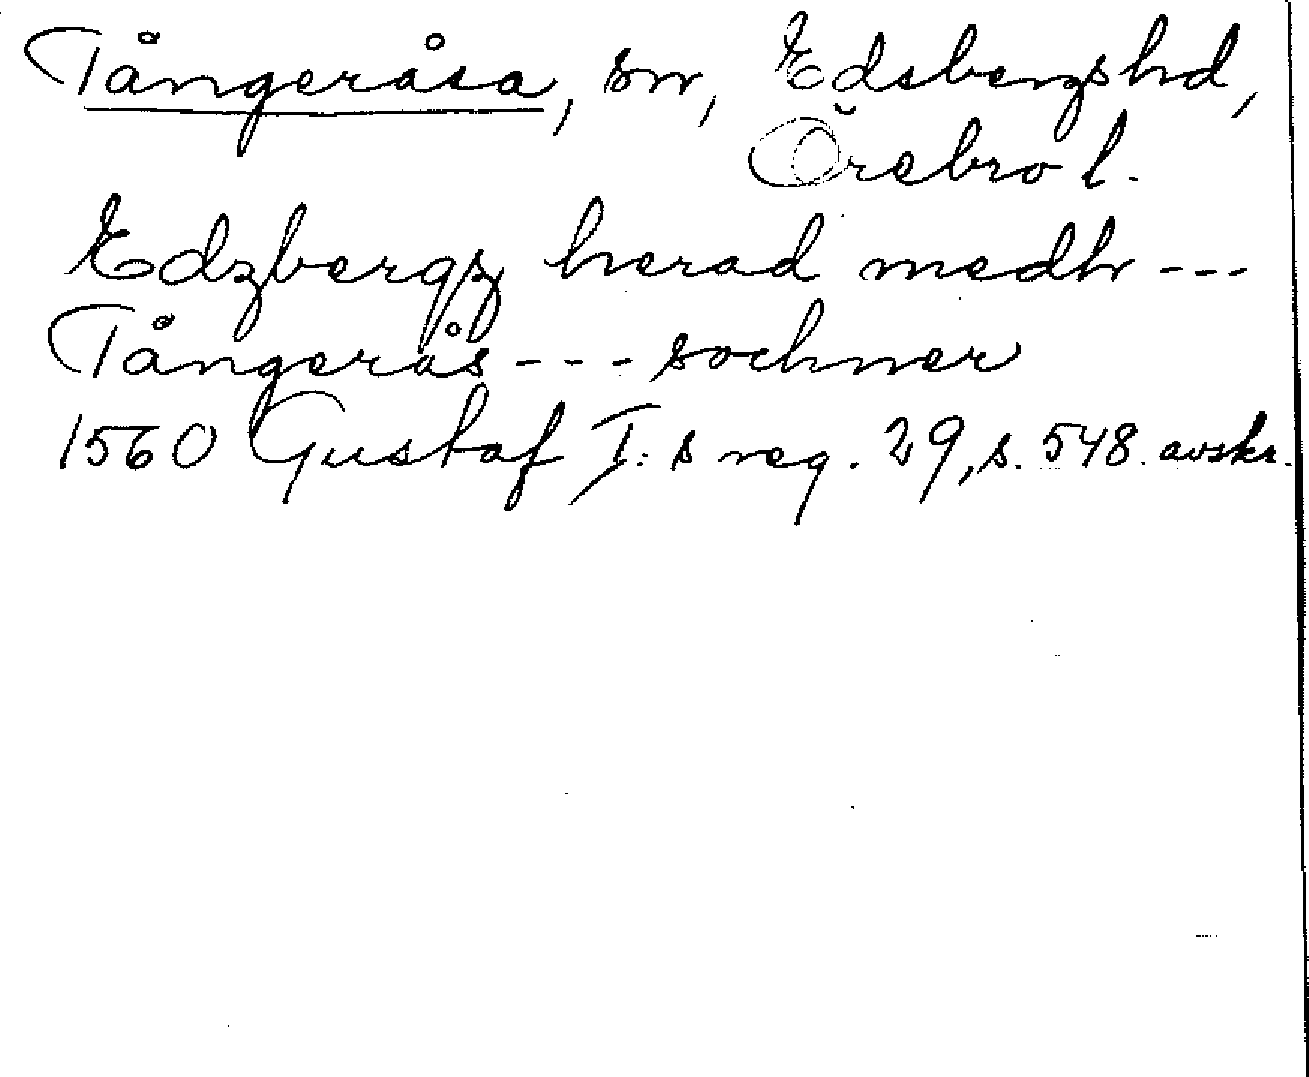 Tångeråsa, sn, Edsbergs hd,
Örebro l.
Edzbergz herad medh ---
Tångerås --- sochner
1560 Gustaf I:s reg. 29, s. 548. avskr.